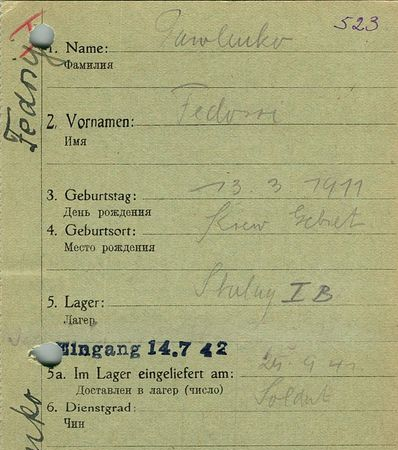 523
1. Name: Pawlenko
Фамилия
2. Vornamen: Fedossi
Имя
3. Geburtstag: 13. 3 1911
День рождения
4. Geburtsort: Kiew Gebiet
Место рождения
5. Lager: Stalag I B
Лагер
Eingang 14.7 42
5a. Im Lager eingeliefert am:
Доставлен в лагер (число)
6. Dienstgrad: Soldat
Чин